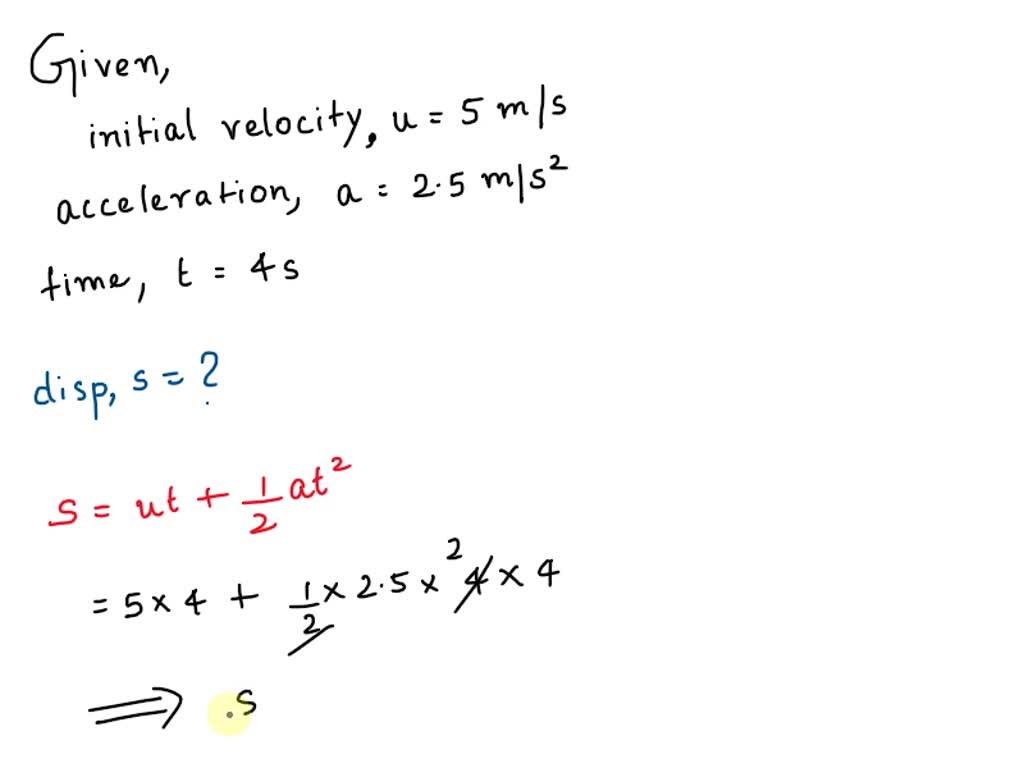 Given,
initial velocity, u = 5 m/s
acceleration, a = 2.5 m/s²
time, t = 4s
disp, s = ?
s = ut + 1/2 at²
= 5 × 4 + 1/2 × 2.5 × 4 2 × 4
⟹ s